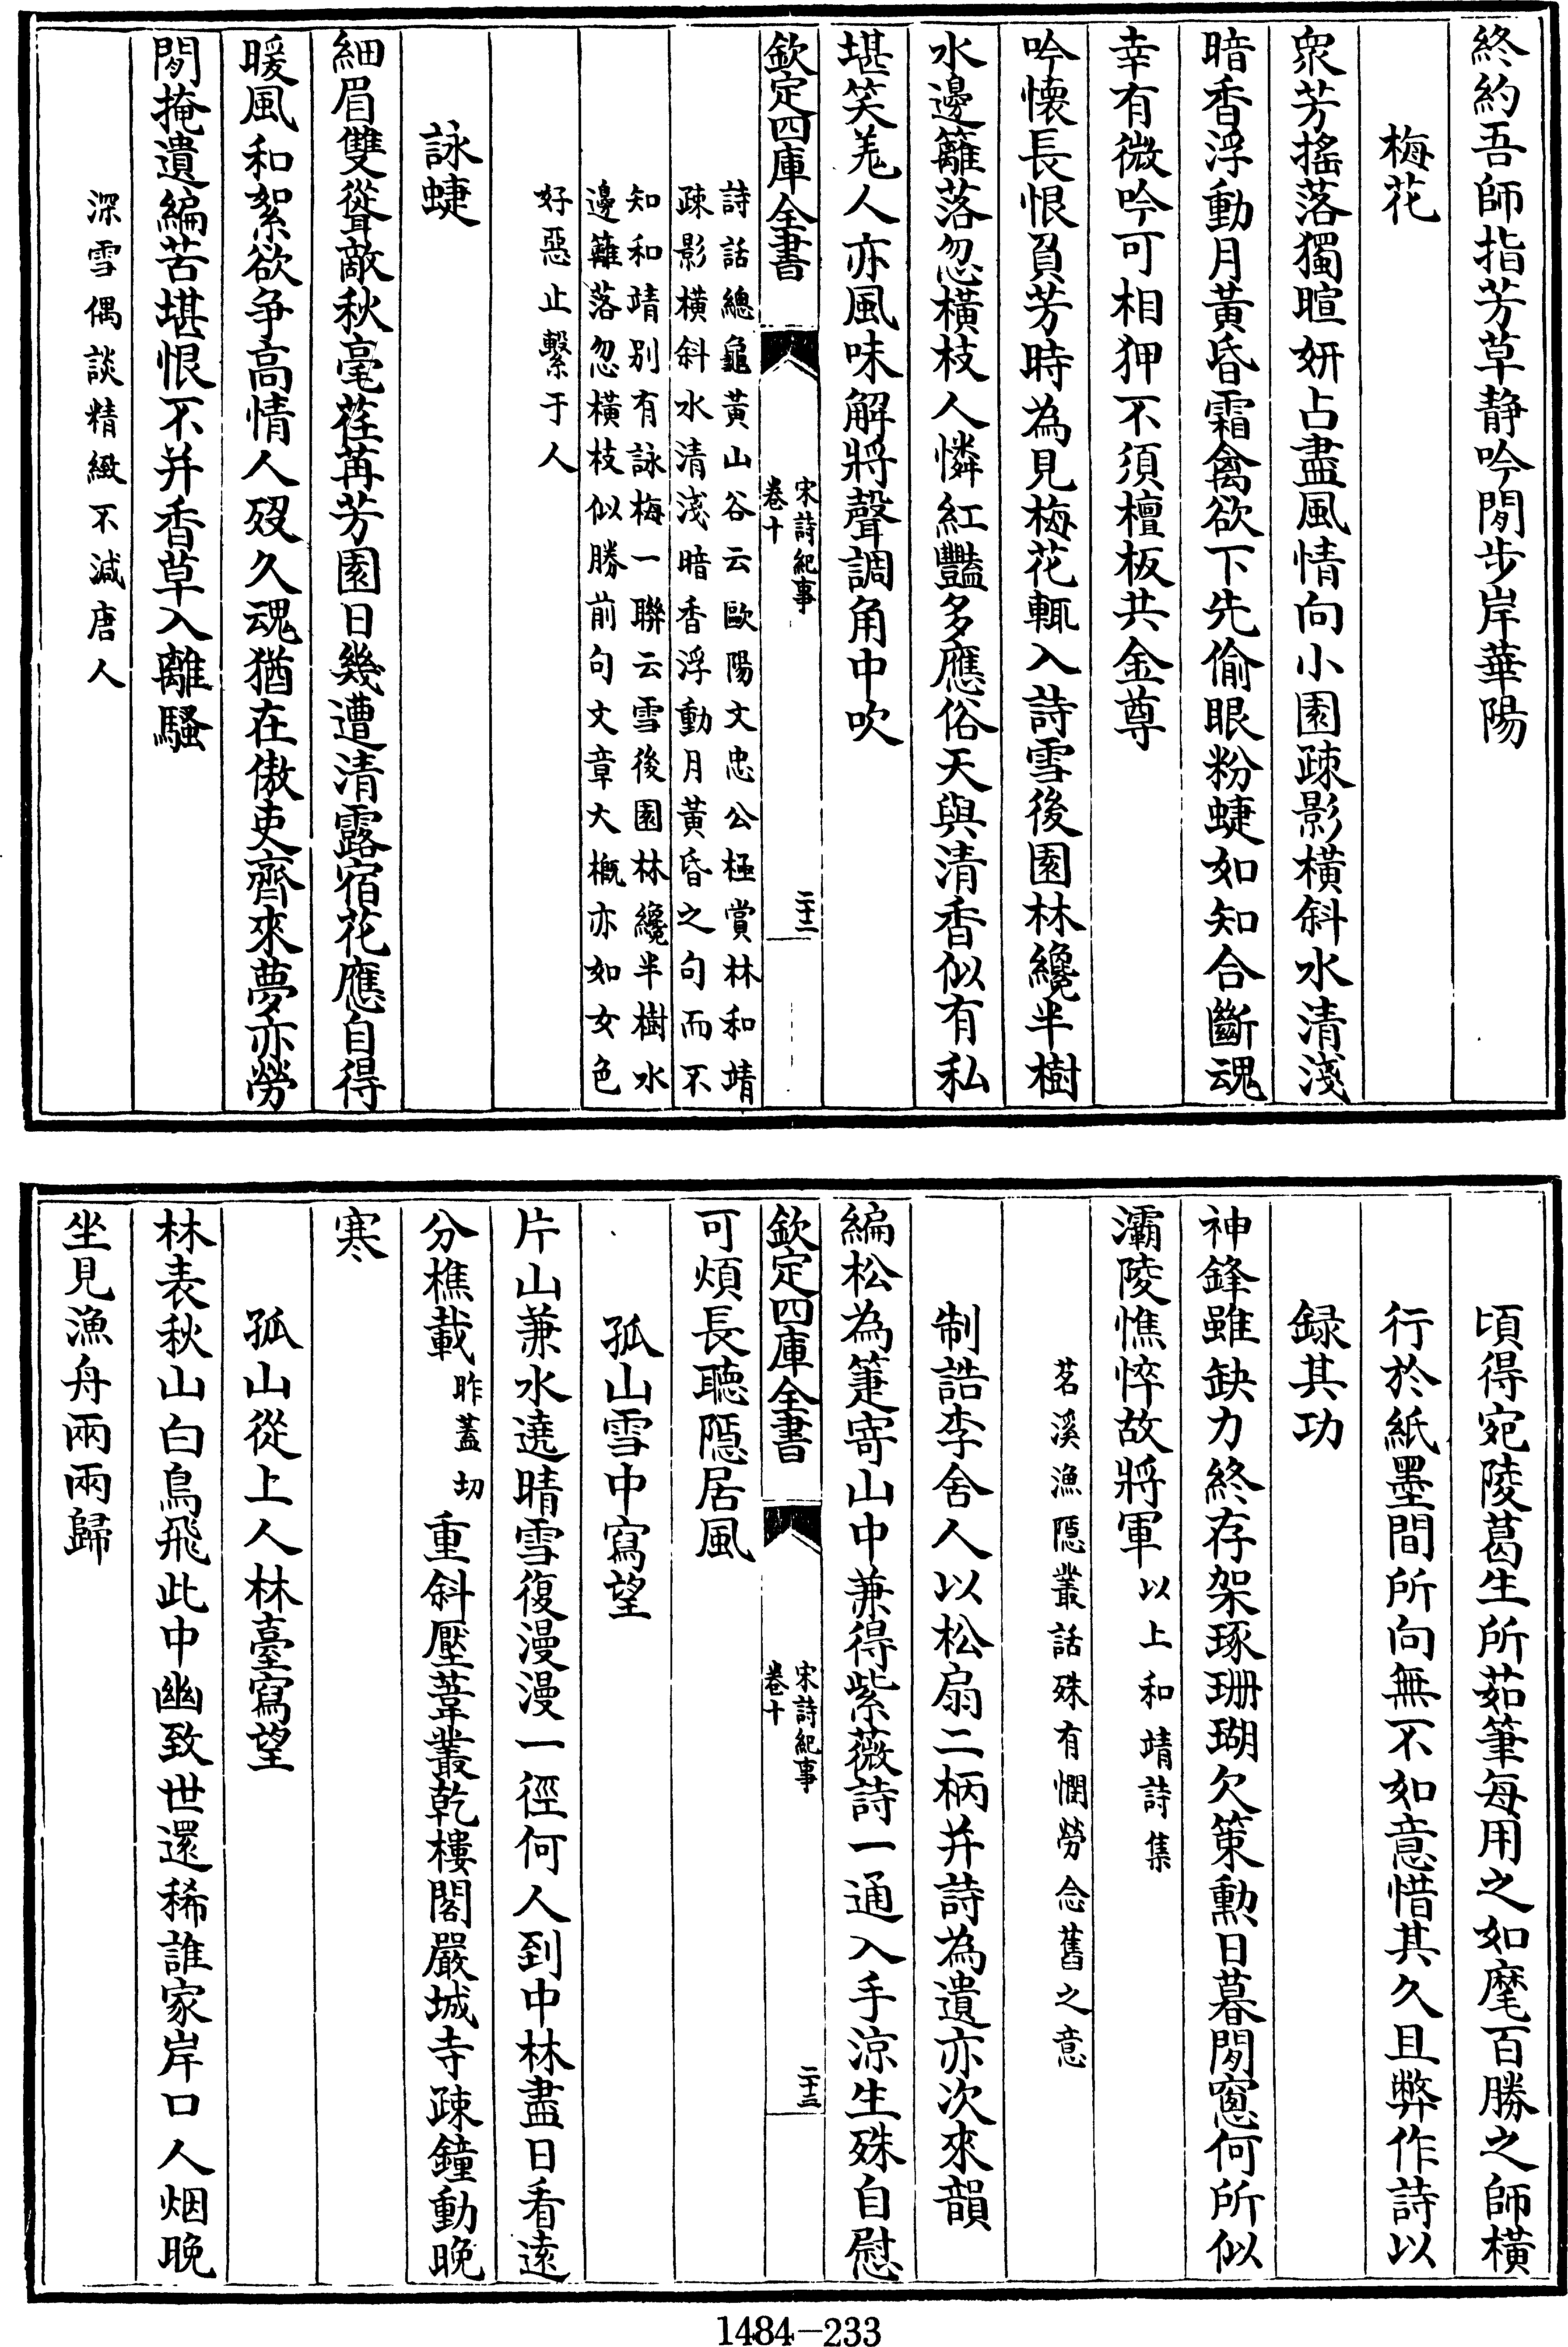 終約吾師指芳草静吟閒步岸華陽
梅花
衆芳搖落獨暄妍占盡風情向小園疎影橫斜水清淺
暗香浮動月黃昏霜禽欲下先偷眼粉蜨如知合斷魂
幸有微吟可相狎不須檀板共金尊
吟懐長恨負芳時為見梅花輒入詩雪後園林纔半樹
水邊籬落忽橫枝人憐紅豔多應俗天與清香似有私
堪笑羌人亦風味解將聲調角中吹
欽定四庫全書
宋詩紀事
卷十
二十二
詩話總龜黃山谷云歐陽文忠公極賞林和靖
疎影橫斜水清淺暗香浮動月黃昏之句而不
知和靖别有詠梅一聯云雪後園林纔半樹水
邊籬落忽橫枝似勝前句文章大概亦如女色
好惡止繫于人
詠蜨
細眉雙聳敵秋毫荏苒芳園日幾遭清露宿花應自得
暖風和絮欲争高情人歿久魂猶在傲吏齊來夢亦勞
閒掩遺編苦堪恨不并香草入離騷
深雪偶談精緻不減唐人
頃得宛陵葛生所茹筆每用之如麾百勝之師橫
行於紙墨間所向無不如意惜其久且弊作詩以
録其功
神鋒雖缺力終存架琢珊瑚欠策勲日暮閒窗何所似
灞陵憔悴故將軍以上和靖詩集
苕溪漁隱叢話殊有憫勞念舊之意
制誥李舍人以松扇二柄并詩為遺亦次來韻
編松為箑寄山中兼得紫薇詩一通入手涼生殊自慰
欽定四庫全書
宋詩紀事
卷十
二十三
可煩長聽隱居風
孤山雪中寫望
片山兼水遶晴雪復漫漫一徑何人到中林盡日看遠
分樵載昨蓋切重斜壓葦叢乾樓閣嚴城寺疎鐘動晚
寒
孤山從上人林臺寫望
林表秋山白鳥飛此中幽致世還稀誰家岸口人烟晚
坐見漁舟兩兩歸
1484-233